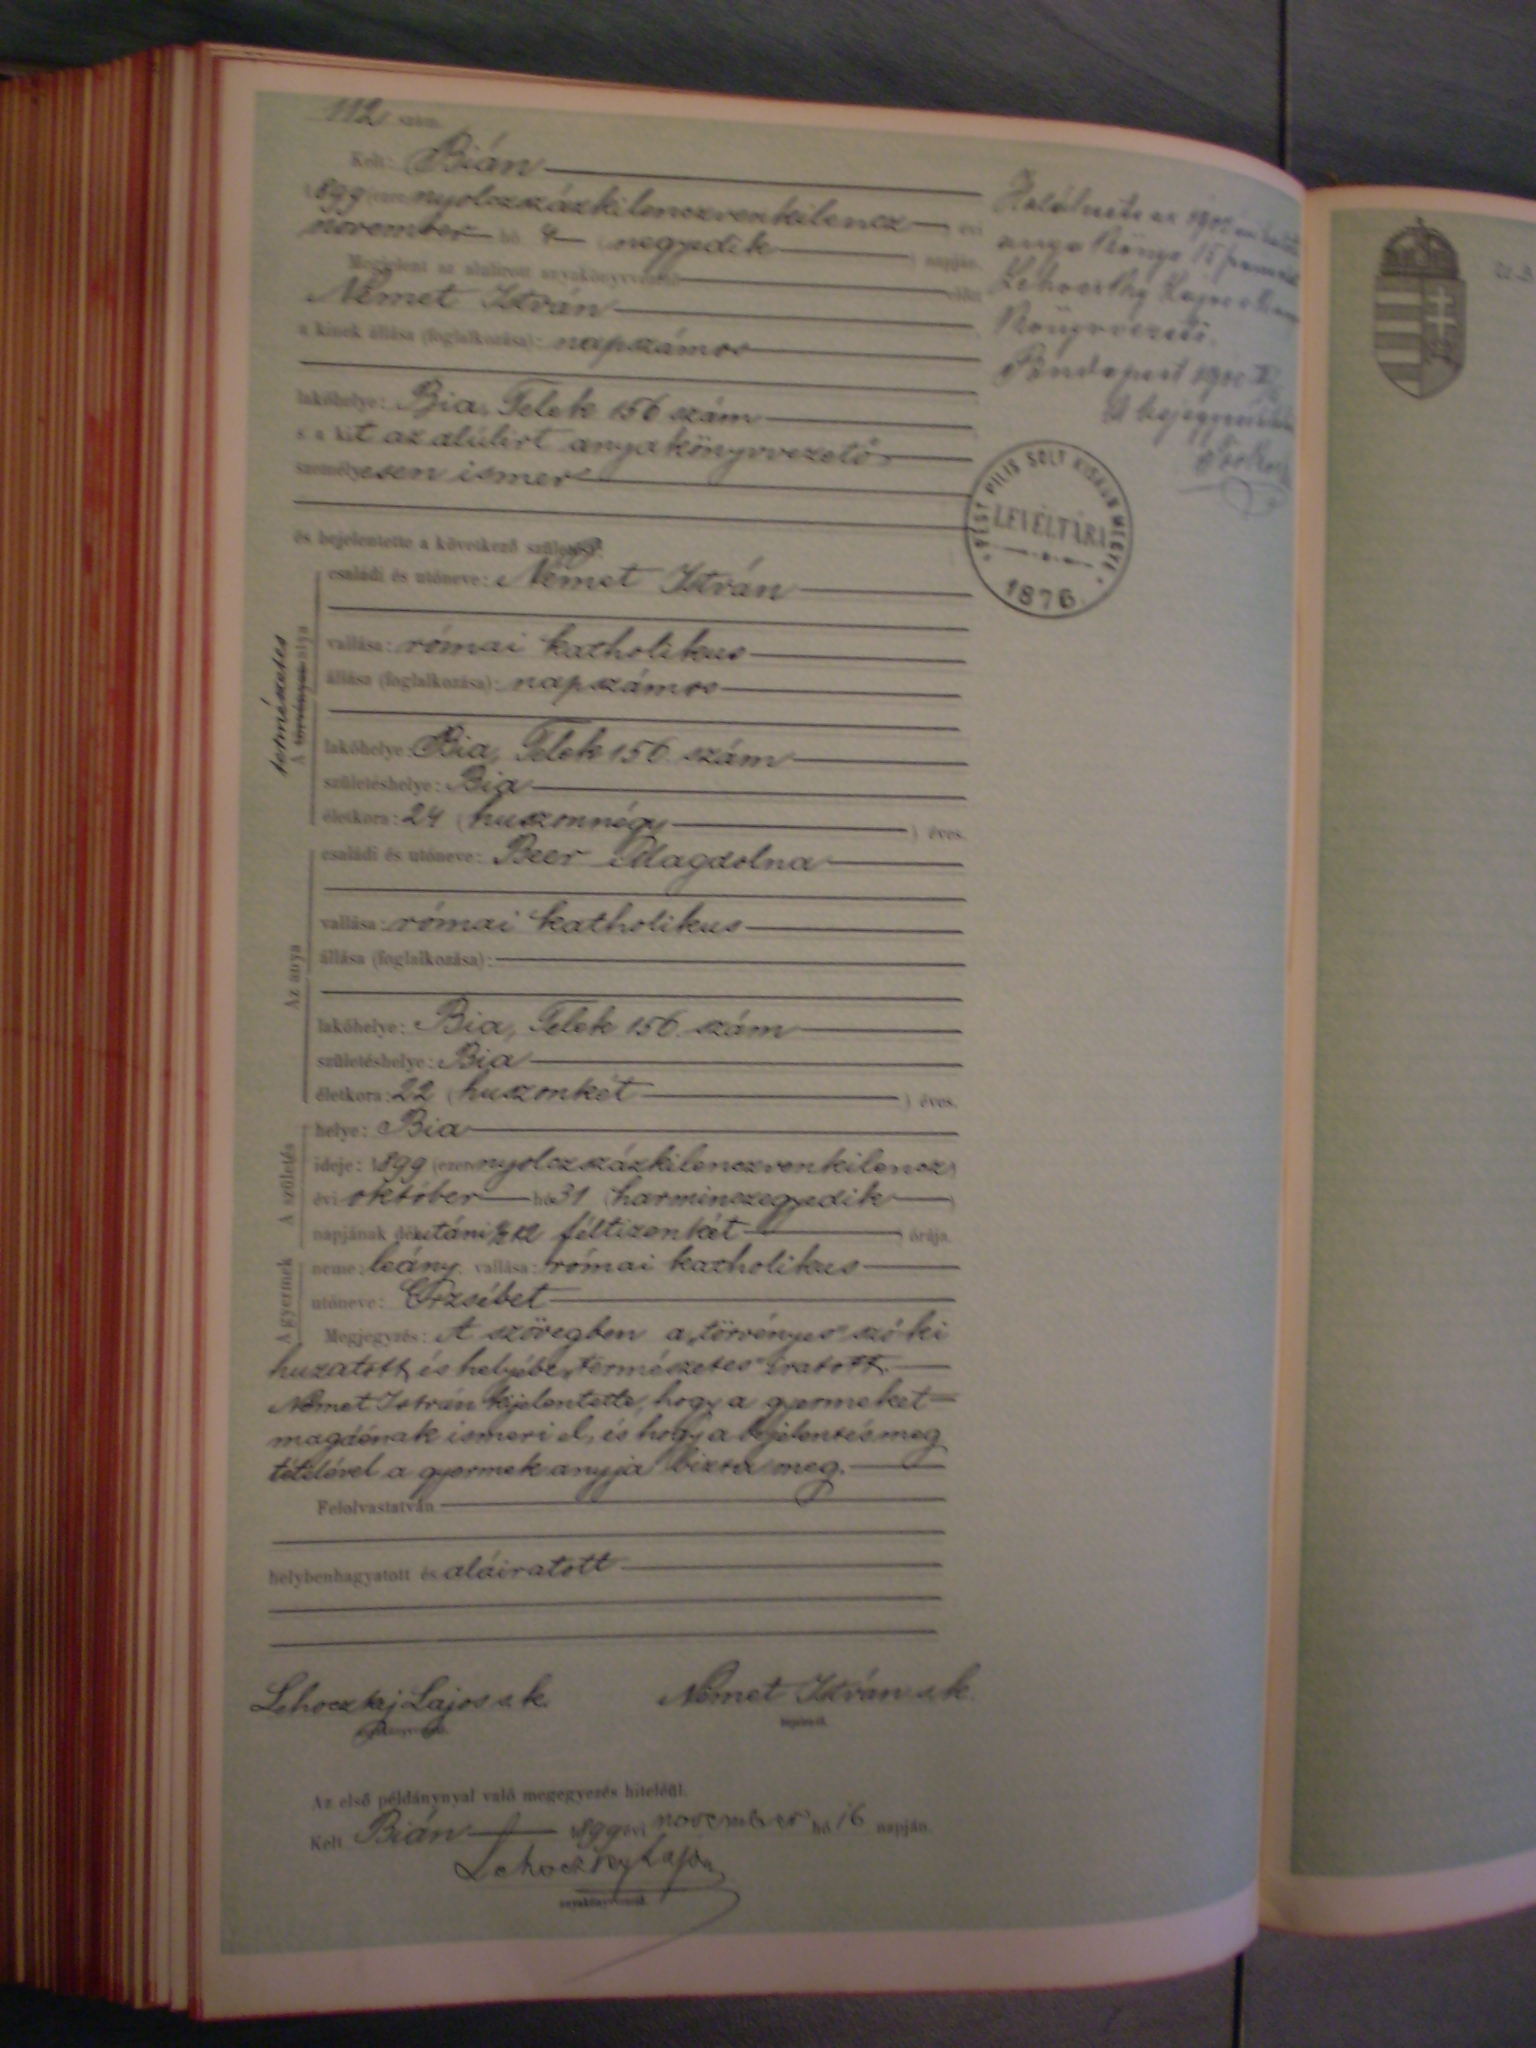 112 szám.
Kelt: Bián
1899 (ezer nyolczszázkilenczvenkilencz) évi
november hó 4 (negyedik) napján.
Megjelent az alulirott anyakönyvvezető előtt
Német István
a kinek állása (foglalkozása): napszámos
lakóhelye: Bia, Telek 156 szám
s a kit az alúlirt anyakönyvvezető
személyesen ismer
és bejelentette a következő születést:
természetes
A törvényes atya
családi és utóneve: Német István
vallása: római katholikus
állása (foglalkozása): napszámos
lakóhelye: Bia, Telek 156 szám
születéshelye: Bia
életkora: 24 (huszonnégy) éves.
Az anya
családi és utóneve: Beer Magdolna
vallása: római katholikus
állása (foglalkozása):
lakóhelye: Bia, Telek 156 szám
születéshelye: Bia
életkora: 22 (huszonkét) éves.
A születés
helye: Bia
ideje: 1899 (ezer nyolczszázkilenczvenkilencz)
évi október hó 31 (harminczegyedik)
napjának délutáni ½12 féltizenkét) órája.
A gyermek
neme: leány. vallása: római katholikus
utóneve: Erzsébet
Megjegyzés: A szövegben a „törvényes" szó ki
huzatott, és helyébe „természetes" iratott.
Német István kijelentette, hogy a gyermeket
magáénak ismeri el, és hogy a bejelentés meg
tételével a gyermek anyja bizta meg.
Felolvastatván
helybenhagyatott és aláiratott
Lehoczky Lajos s.k.
anyakönyvvezető.
Német István s.k.
bejelentő.
Az első példánynyal való megegyezés hiteléül.
Kelt Bián 1899 évi november hó 16 napján.
Lehoczky Lajos
anyakönyvvezető.
Lehoczky Lajos
Könyvvezető.
Budapest
PEST PILIS SOLT KISKUN MEGYE
LEVÉLTÁRA
1876.